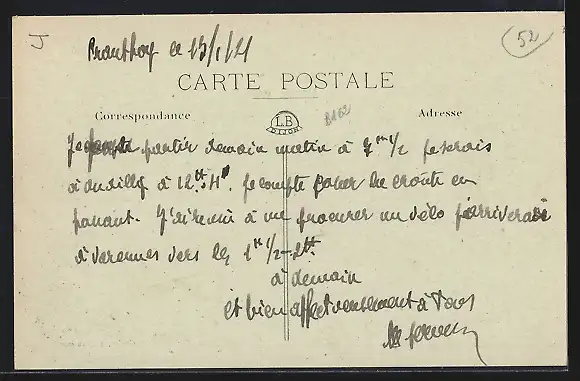 Prauthoy le 13/1/21
52
CARTE POSTALE
Correspondance
Adresse
LB
DIJON
Je compte partir demain matin à 7 h 1/2 je serais
à Andilly à 12 H. Je compte casser la croute en
passant. J'ai réussi à me procurer un vélo j'arriverais
à Varennes vers les 1 h 1/2 - 2 h.
à demain
et bien affectueusement à tous